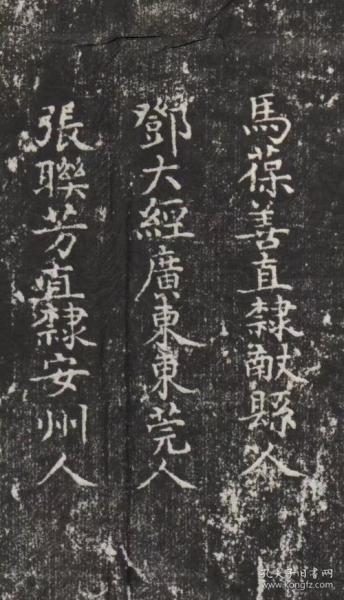 馬葆善直隸献縣人
鄧大經廣東東莞人
張聯芳直隸安州人
孔夫子旧书网
www.kongfz.com